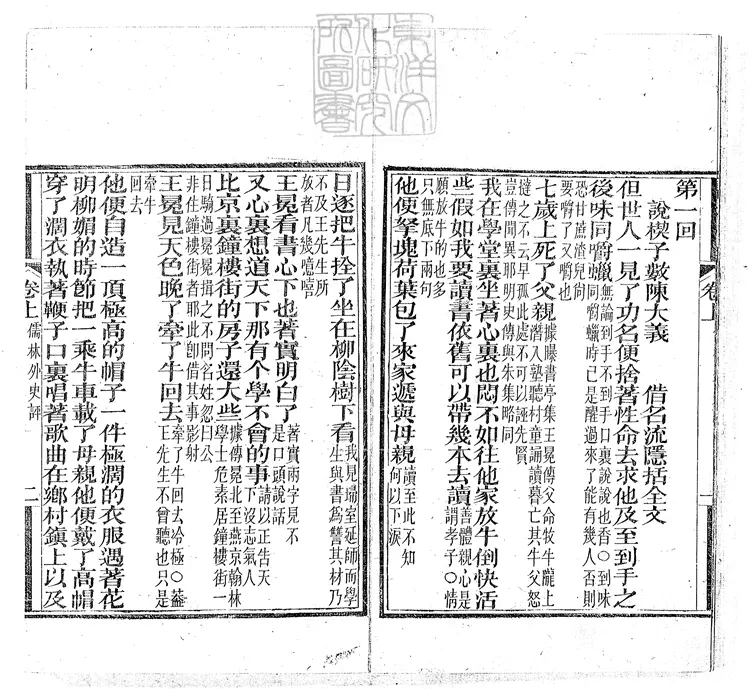 東洋文
化研究
所圖書
卷上
第一回
說楔子敷陳大義 借名流隱括全文
但世人一見了功名便捨著性命去求他及至到手之
後味同嚼蠟
無論到手不到手口裏說說也香○到味
同嚼蠟時已是醒過來了能有幾人否則
恐甘蔗渣兒尙
要嚼了又嚼也
七歲上死了父親
據曝書亭集王冕傳父命牧牛隴上
潛入塾聽村童誦讀暮亡其牛父怒
撻之不云早孤此處不可以誣先賢
豈傳聞異耶明史傳與朱集略同
我在學堂裏坐著心裏也悶不如往他家放牛倒快活
些假如我要讀書依舊可以帶幾本去讀
善體親心是
謂孝子○情
願放牛的也多
只無底下兩句
他便拏塊荷葉包了來家遞與母親
讀至此不知
何以下淚
日逐把牛拴了坐在柳陰樹下看
我見瑞室延師而學
生與書爲讐其材乃
不及王先生所
放者凡幾噫嘻
王冕看書心下也著實明白了
著實兩字見不
是口頭說話
又心裏想道天下那有个學不會的事
請以正告天
下沒志氣人
比京裏鐘樓街的房子還大些
據傳冕北至燕京翰林
學士危素居鐘樓街一
日騎過冕冕揖之不問名姓忽曰公
非住鐘樓街者耶此卽借其事影射
王冕見天色晚了牽了牛回去
牽了牛回去冷極○葢
王先生不曾聽也只是
牽牛
回去
他便自造一頂極高的帽子一件極濶的衣服遇著花
明柳媚的時節把一乘牛車載了母親他便戴了高帽
穿了濶衣執著鞭子口裏唱著歌曲在鄉村鎮上以及
卷上 儒林外史評 二